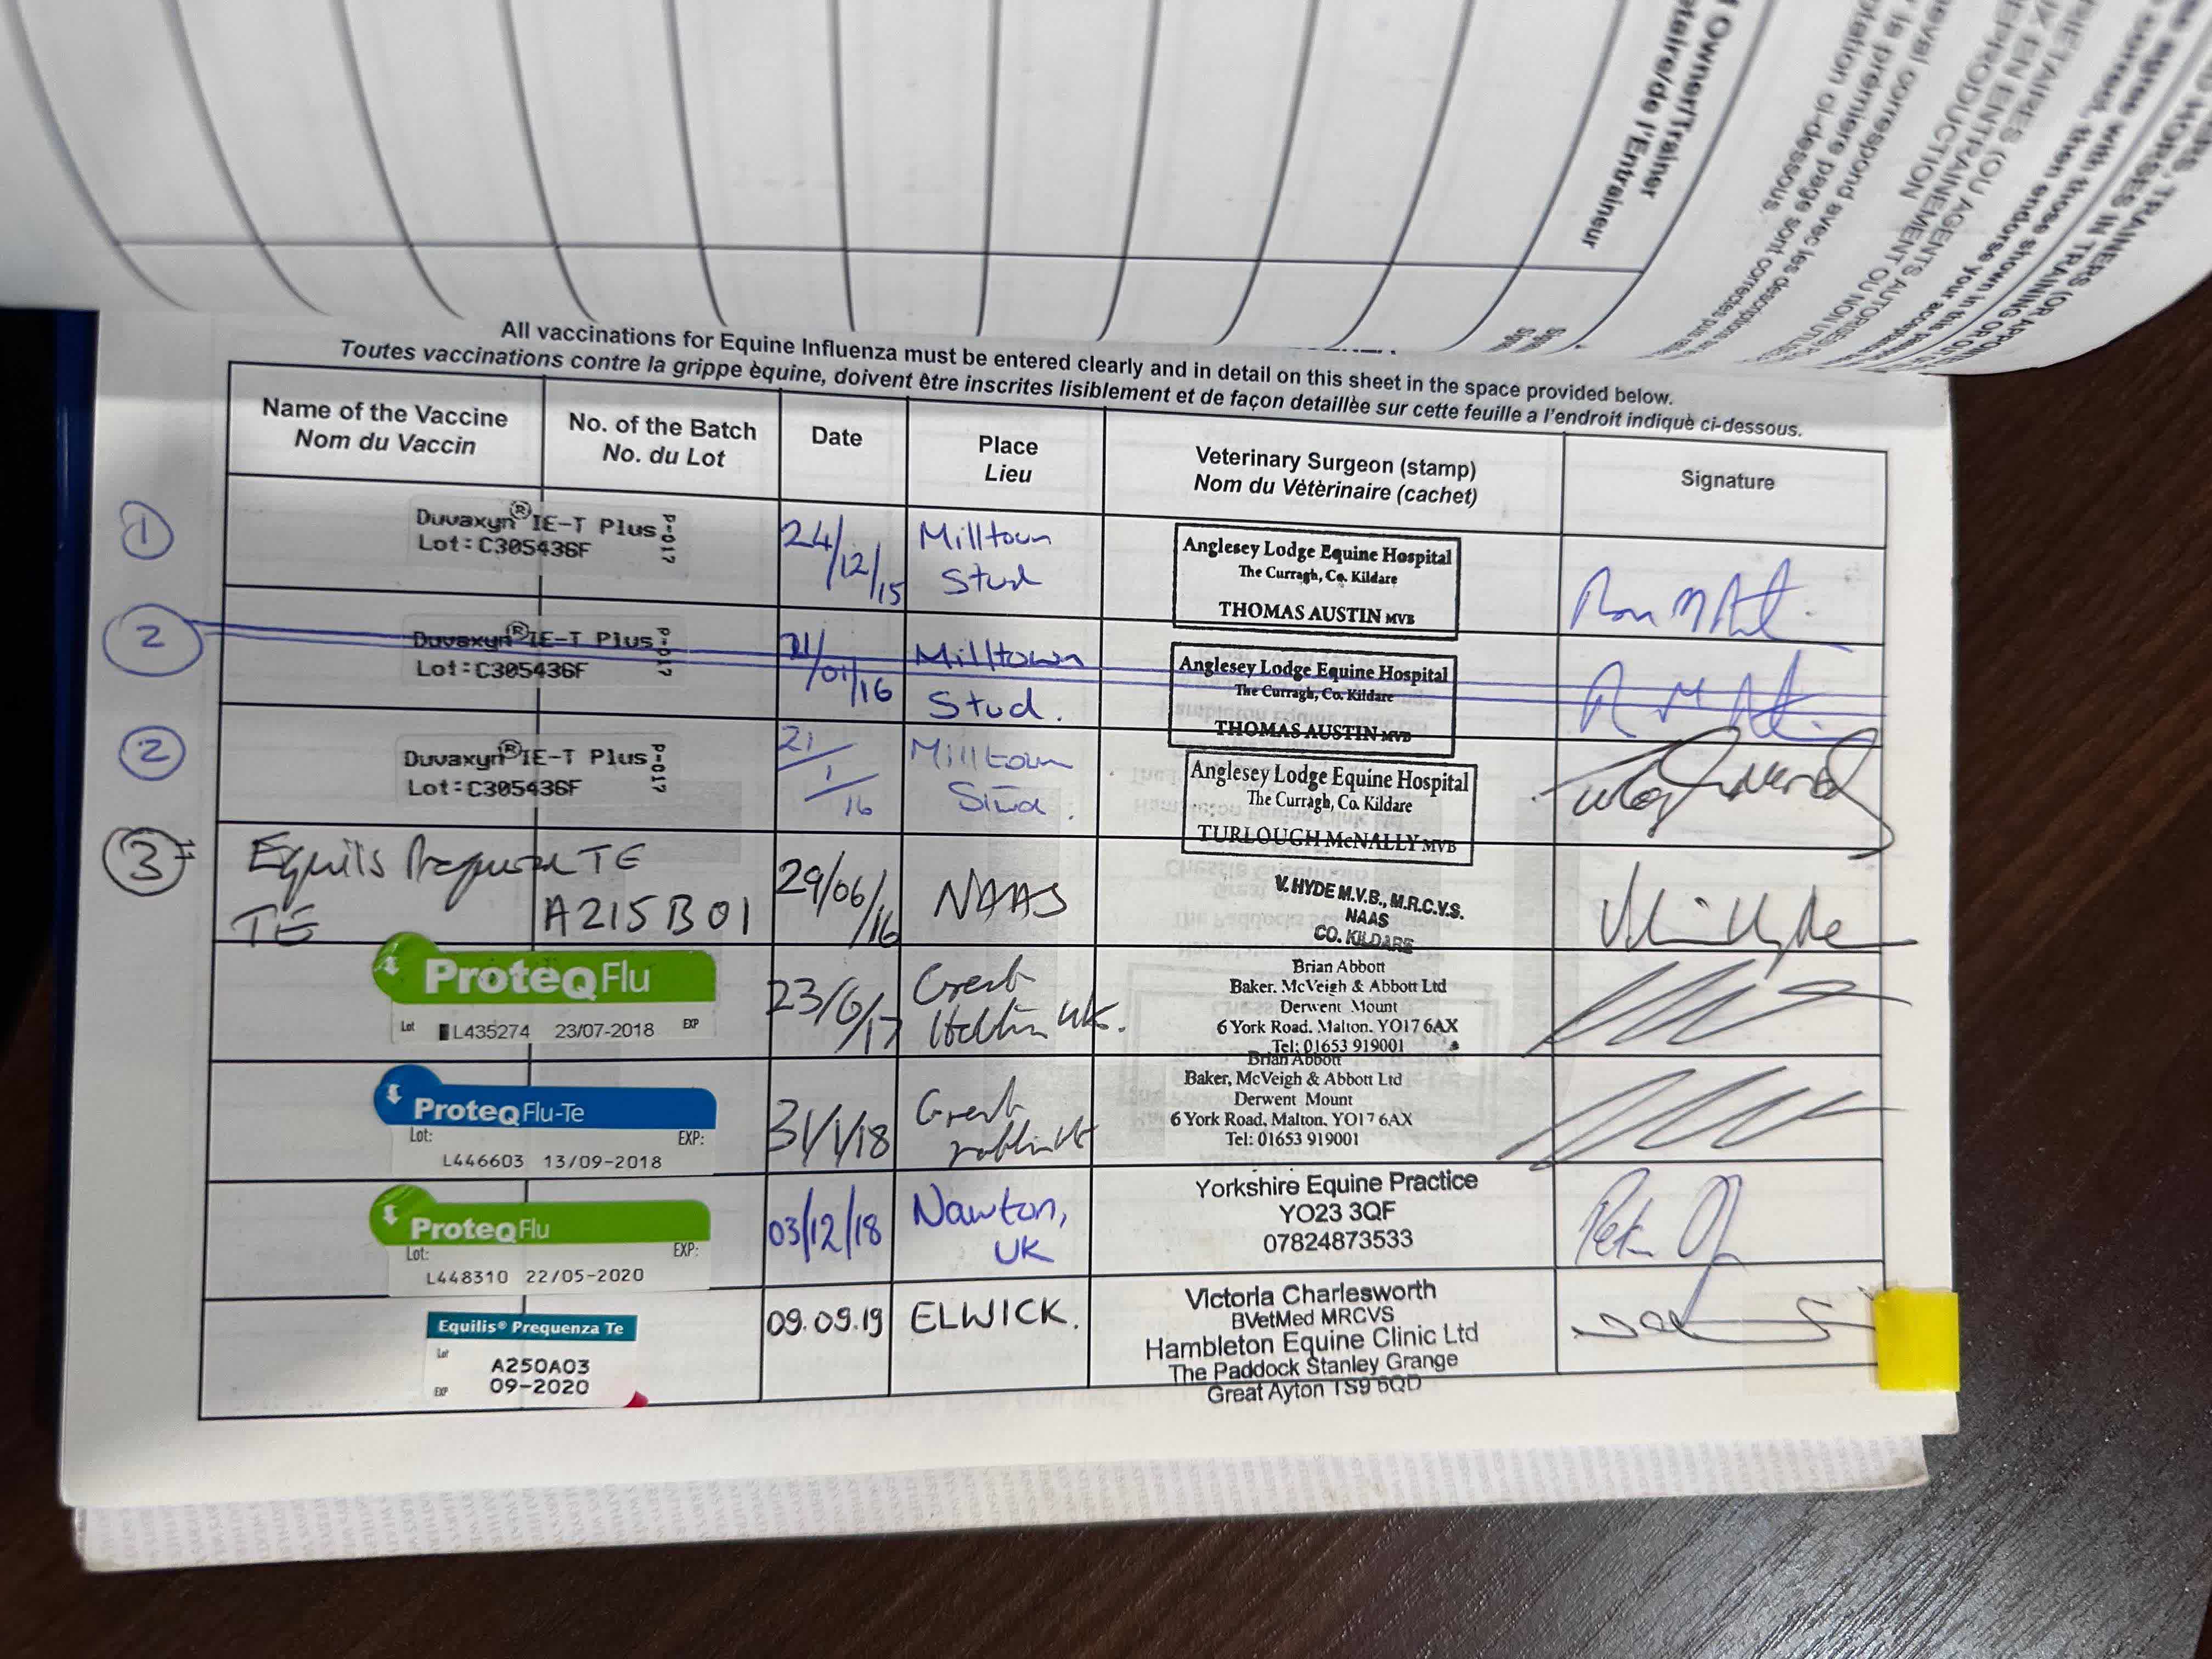 l Owner/Trainer
étaire/de l'Entraîneur
TRAINERS (OR APPOIN
HORSES IN TRAINING OR
agree with those shown in the
correct, then endorse your accept
UX EN ENTRAINEMENT OU NON UTILISES
REPRODUCTION
cheval correspond avec les descriptions
la première page sont correctes puis
ptation ci-dessous.
All vaccinations for Equine Influenza must be entered clearly and in detail on this sheet in the space provided below.
Toutes vaccinations contre la grippe èquine, doivent être inscrites lisiblement et de façon detaillèe sur cette feuille a l'endroit indiquè ci-dessous.
Name of the Vaccine
Nom du Vaccin
No. of the Batch
No. du Lot
Date
Place
Lieu
Veterinary Surgeon (stamp)
Nom du Vètèrinaire (cachet)
Signature
1
Duvaxyn® IE-T Plus
Lot:C305436F
P-017
24/12/15
Milltown
Stud
Anglesey Lodge Equine Hospital
The Curragh, Co. Kildare
THOMAS AUSTIN MVB
2
Duvaxyn® IE-T Plus
Lot:C305436F
P-017
21/01/16
Milltown
Stud.
Anglesey Lodge Equine Hospital
The Curragh, Co. Kildare
THOMAS AUSTIN MVB
2
Duvaxyn® IE-T Plus
Lot:C305436F
P-017
21/1/16
Milltown
Stud.
Anglesey Lodge Equine Hospital
The Curragh, Co. Kildare
TURLOUGH McNALLY MVB
3
Equils Prequenza TE
TE
A215B01
29/06/16
NAAS
V. HYDE M.V.B., M.R.C.V.S.
NAAS
CO. KILDARE
ProteqFlu
Lot L435274 23/07-2018 EXP
23/6/17
Great
Habton UK.
Brian Abbott
Baker. McVeigh & Abbott Ltd
Derwent Mount
6 York Road. Malton. YO17 6AX
Tel: 01653 919001
ProteqFlu-Te
Lot: EXP:
L446603 13/09-2018
31/1/18
Great
Brian Abbott
Baker, McVeigh & Abbott Ltd
Derwent Mount
6 York Road, Malton. YO17 6AX
Tel: 01653 919001
ProteqFlu
Lot: EXP:
L448310 22/05-2020
03/12/18
Nawton,
UK
Yorkshire Equine Practice
YO23 3QF
07824873533
Equilis® Prequenza Te
Lot
A250A03
EXP 09-2020
09.09.19
ELWICK.
Victoria Charlesworth
BVetMed MRCVS
Hambleton Equine Clinic Ltd
The Paddock Stanley Grange
Great Ayton TS9 6QD